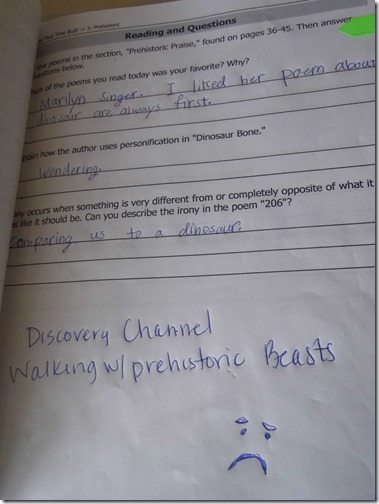 Tree Ball -> 3: Prehistoric
Reading and Questions
the poems in the section, "Prehistoric Praise," found on pages 36-45. Then answer
below.
of the poems you read today was your favorite? Why?
Marilyn Singer. I liked her poem about
dinosaur are always first.
how the author uses personification in "Dinosaur Bone."
Wondering.
occurs when something is very different from or completely opposite of what it
like it should be. Can you describe the irony in the poem "206"?
Comparing us to a dinosaur.
Discovery Channel
Walking w/ prehistoric Beasts